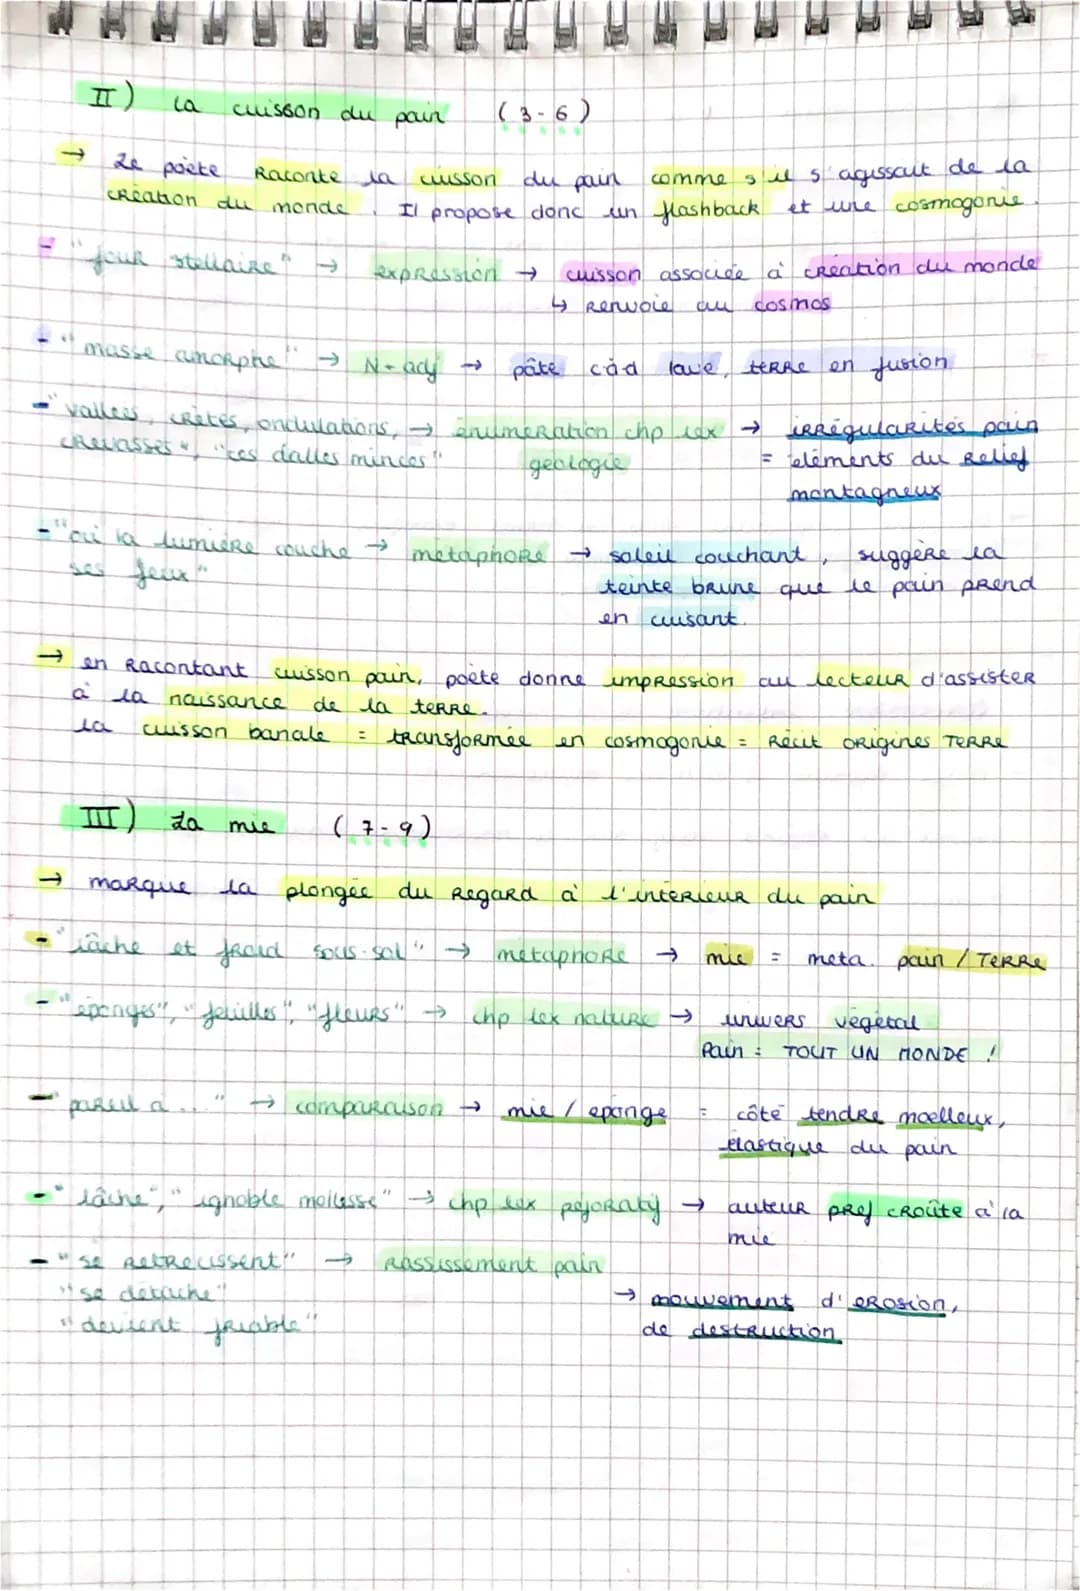 II) La cuisson du pain (3-6)
→ Le poète Raconte la cuisson du pain comme s'il s'agissait de la
création du monde. Il propose donc un flashback et une cosmogonie.
- "four stellaire" → expression → cuisson associée à création du monde
↳ Renvoie au cosmos
- "masse amorphe" → N-adj → pâte càd lave, terre en fusion
- "vallées, crêtes, ondulations, → énumération chp lex → irrégularités pain
crevasses", "ces dalles minces" géologie = éléments du Relief
montagneux
- "où la lumière couche → métaphore → soleil couchant, suggère la
ses feux" teinte brune que le pain prend
en cuisant.
→ en Racontant cuisson pain, poète donne impression au lecteur d'assister
à la naissance de la terre.
la cuisson banale = transformée en cosmogonie = Récit origines TERRE
III) La mie (7-9)
→ marque la plongée du Regard à l'intérieur du pain
- "lâche et froid sous-sol" → métaphore → mie = meta. pain / TERRE
- "éponges", "feuilles", "fleurs" → chp lex nature → univers végétal
Pain = TOUT UN MONDE !
- "pareil à ..." → comparaison → mie / éponge = côté tendre moelleux,
élastique du pain
- "lâche", "ignoble mollesse" → chp lex péjoratif → auteur préf croûte à la
mie
- "se rétrécissent" → Rassissement pain
"se détache" → mouvement d'érosion,
"devient friable" de destruction